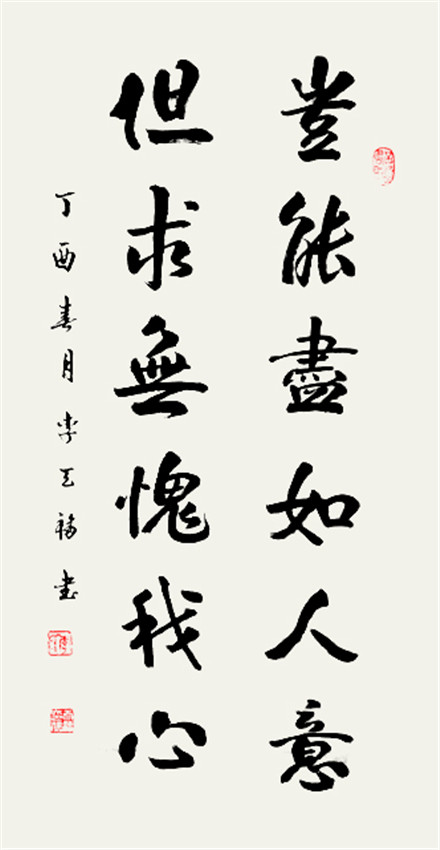 豈能盡如人意
但求無愧我心
丁酉春月李天福書